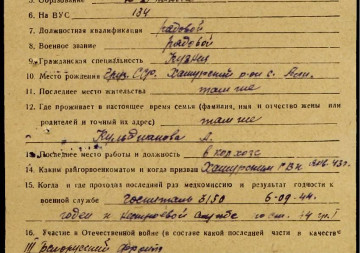 6. На ВУС 134
7. Должностная квалификация рядовой
8. Военное звание рядовой
9. Гражданская специальность
10. Место рождения Груз. ССР. Хашурский р-он с.
11. Последнее место жительства там же
12. Где проживает в настоящее время семья (фамилия, имя и отчество жены или
родителей и точный их адрес) там же
13. Последнее место работы и должность в колхозе
14. Каким райгорвоенкоматом и когда призван Хашурским РВК
15. Когда и где проходил последний раз медкомиссию и результат годности к
военной службе госпиталь 5150 6-09.44.
годен к строевой службе по ст.
16. Участие в Отечественной войне (в составе какой последней части и качестве
III Белорусский фронт